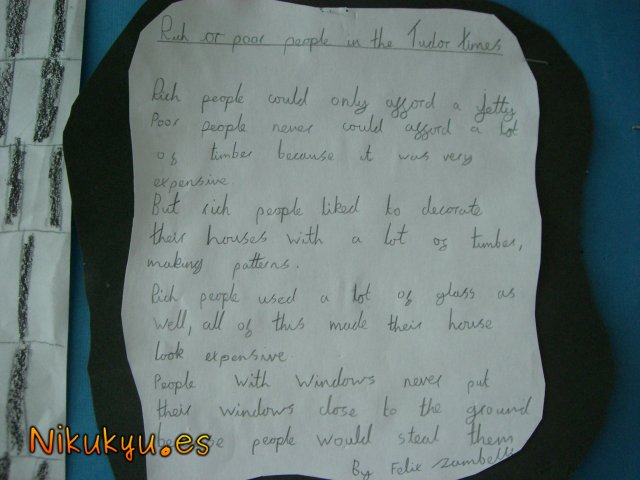 Rich or poor people in the Tudor times
Rich people could only afford a jetty
Poor people never could afford a lot
of timber because it was very
expensive
But rich people liked to decorate
their houses with a lot of timber,
making patterns.
Rich people used a lot of glass as
well, all of this made their house
look expensive.
People with windows never put
their windows close to the ground
because people would steal them
By Felix
Nikukyu.es